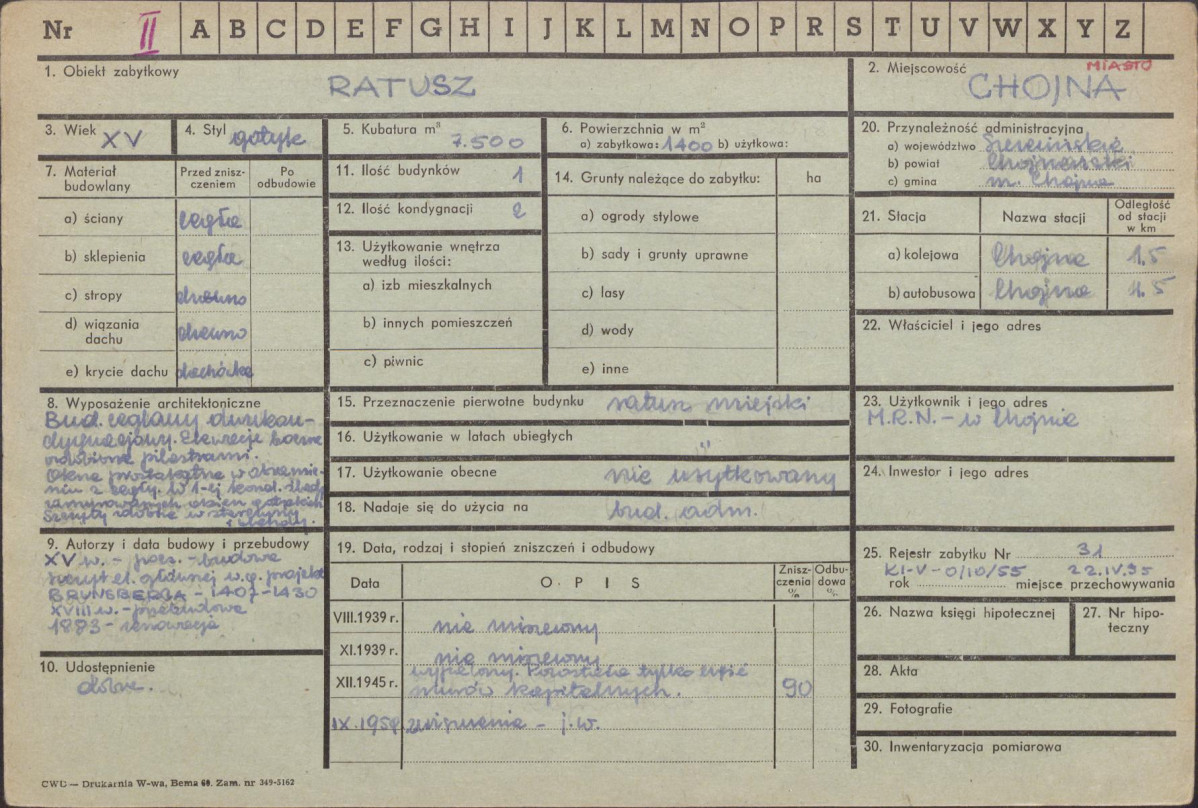 Nr II A B C D E F G H I J K L M N O P R S T U V W X Y Z
1. Obiekt zabytkowy
RATUSZ
2. Miejscowość
MIASTO
CHOJNA
3. Wiek XV
4. Styl gotyk
5. Kubatura m³
7.500
6. Powierzchnia w m²
a) zabytkowa: 1400 b) użytkowa:
20. Przynależność administracyjna
a) województwo Szczecińskie
b) powiat Chojnarski
c) gmina m. Chojna
7. Materiał budowlany
Przed zniszczeniem
Po odbudowie
a) ściany cegła
b) sklepienia cegła
c) stropy drewno
d) wiązania dachu drewno
e) krycie dachu dachówka
11. Ilość budynków 1
12. Ilość kondygnacji 2
13. Użytkowanie wnętrza według ilości:
a) izb mieszkalnych
b) innych pomieszczeń
c) piwnic
14. Grunty należące do zabytku:
ha
a) ogrody stylowe
b) sady i grunty uprawne
c) lasy
d) wody
e) inne
21. Stacja
Nazwa stacji
Odległość od stacji w km
a) kolejowa Chojna 1.5
b) autobusowa Chojna 1.5
22. Właściciel i jego adres
8. Wyposażenie architektoniczne
Bud. ceglany dwukon-
dygnacjowy. Elewacje boczne
ozdobione pilastrami.
Okna prostokątne w obramie-
niu z cegły. w 1-ej kond. ślady
zamurowanych okien gotyckich
Szczyty zdobne w sterczyny
i blendy.
15. Przeznaczenie pierwotne budynku ratusz miejski
16. Użytkowanie w latach ubiegłych "
17. Użytkowanie obecne nie użytkowany
18. Nadaje się do użycia na bud. adm.
23. Użytkownik i jego adres
M.R.N. - w Chojnie
24. Inwestor i jego adres
9. Autorzy i data budowy i przebudowy
XV w. - pocz. - budowa
szczyt el. w.g. projektu
BRUNSBERGA - 1407-1430
XVIII w. - przebudowa
1883 - renowacja
10. Udostępnienie
dobre.
19. Data, rodzaj i stopień zniszczeń i odbudowy
Data
OPIS
Zniszczenia %
Odbudowa %
VIII.1939 r. nie niszczony
XI.1939 r. nie niszczony
wypalony. Pozostała tylko część
XII.1945 r. murów kapitalnych. 90
IX.1959 zniszczenia - j.w.
25. Rejestr zabytku Nr 31
KI-V-0/10/55 22.IV.55
rok miejsce przechowywania
26. Nazwa księgi hipotecznej
27. Nr hipoteczny
28. Akta
29. Fotografie
30. Inwentaryzacja pomiarowa
CWD — Drukarnia W-wa, Bema 60. Zam. nr 349-5162